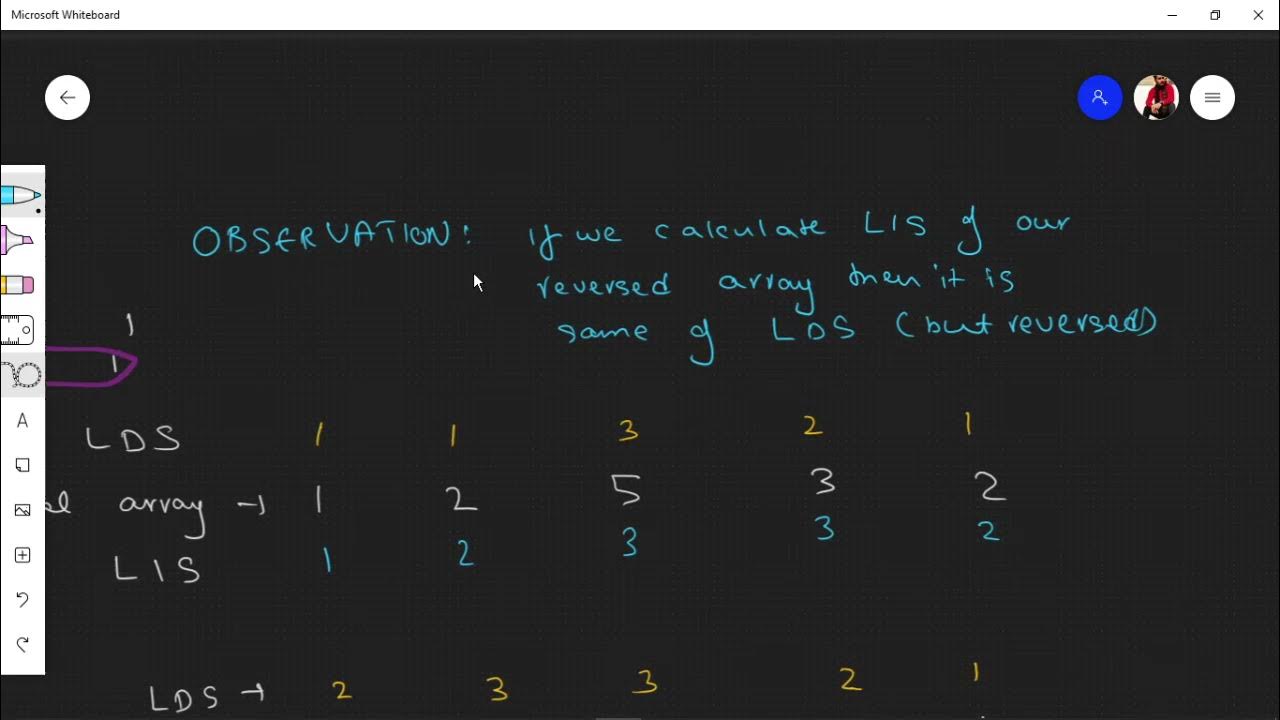 Microsoft Whiteboard
OBSERVATION: if we calculate LIS of our
reversed array then it is
same of LDS (but reversed)
1
1
LDS 1 1 3 2 1
array → 1 2 5 3 2
LIS 1 2 3 3 2
LDS → 2 3 3 2 1
A